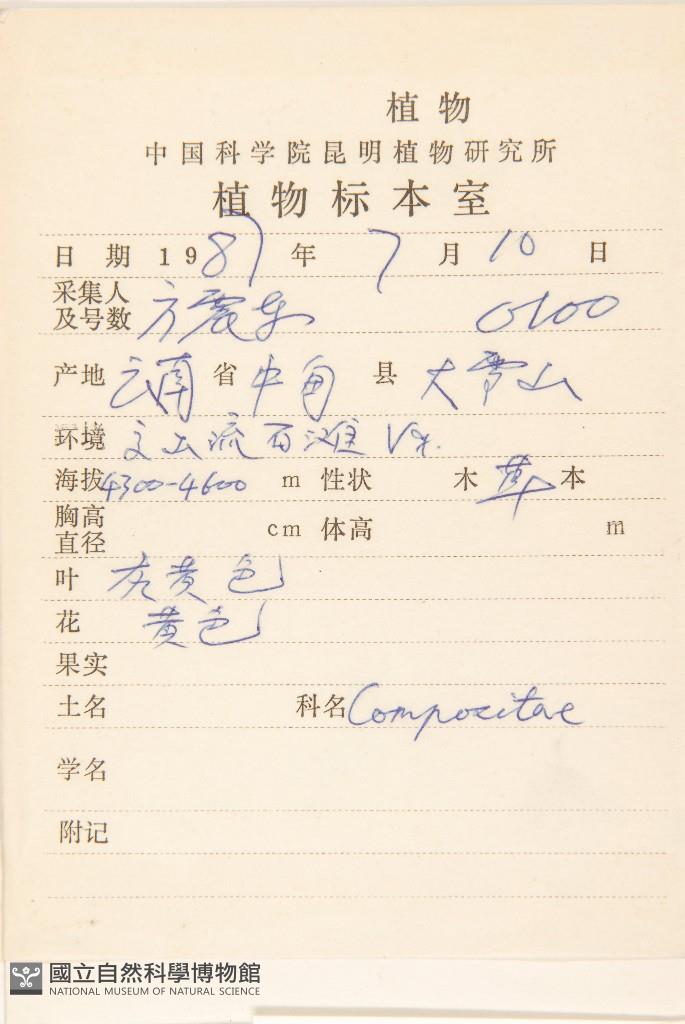 植物
中国科学院昆明植物研究所
植物标本室
日期 1987 年 7 月 10 日
采集人
及号数 方震东 0100
产地 云南 省 中甸 县 大雪山
环境 流石滩
海拔 4300-4600 m 性状 木 草 本
胸高
直径 cm 体高 m
叶 灰黄色
花 黄色
果实
土名 科名 Compositae
学名
附记
國立自然科學博物館
NATIONAL MUSEUM OF NATURAL SCIENCE